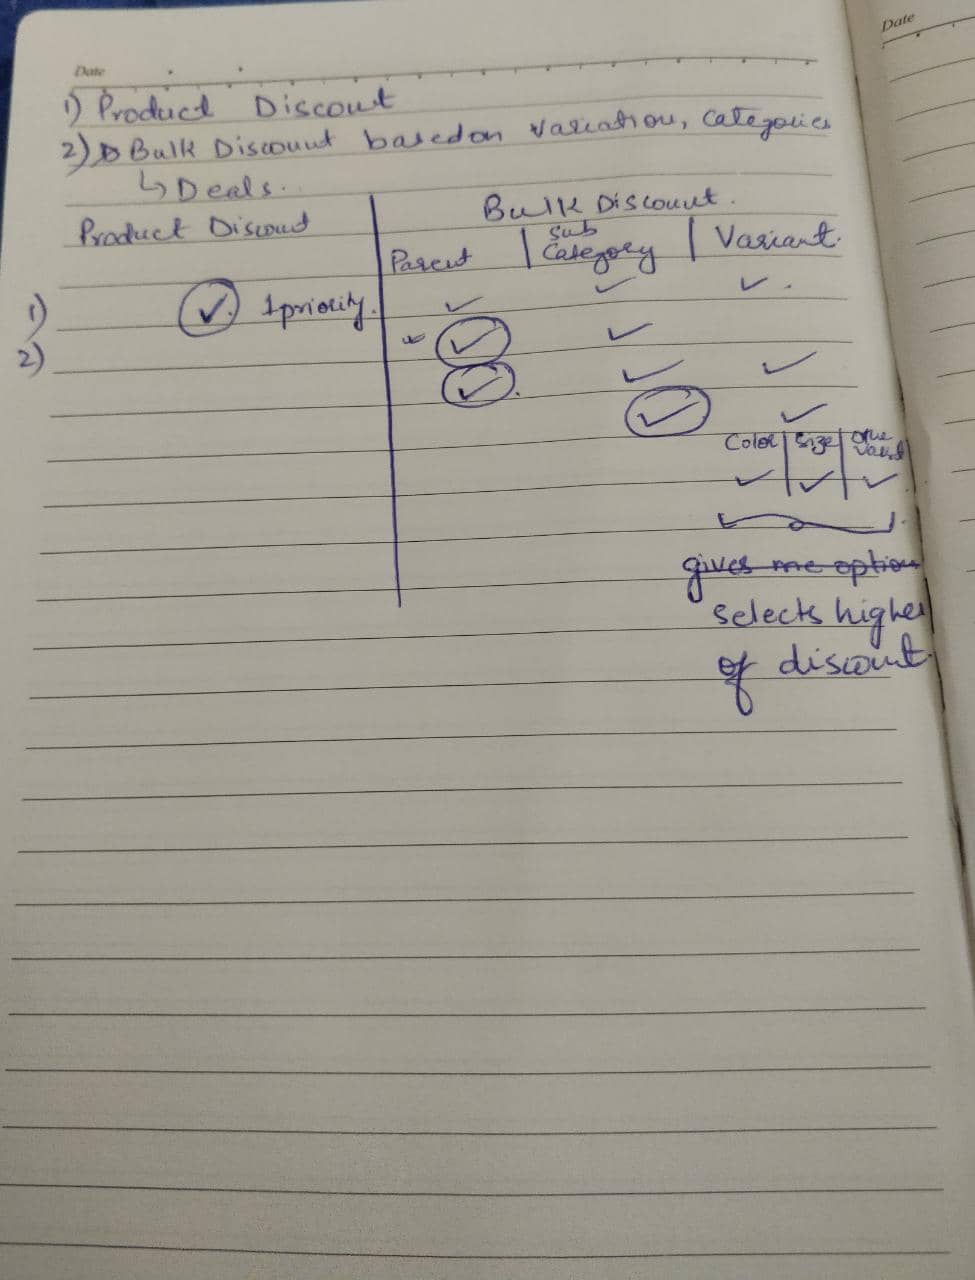 Date
Date
1) Product Discout
2) Bulk Discount based on variation, Categories
↳ Deals.
Product Discoud | Bulk Discount.
Parent | Sub Category | Variant.
1) ✓ 1 priority. ✓ ✓ ✓.
2) ✓ ✓
✓. ✓ ✓
✓ ✓
Color | Size |
✓ | ✓ | ✓
gives me option
selects higher
of discount